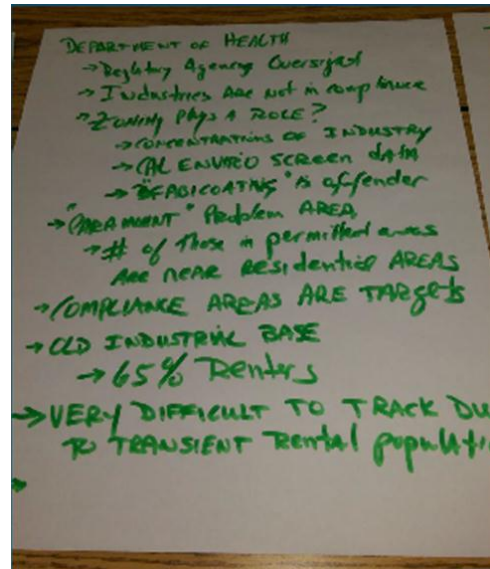 DEPARTMENT OF HEALTH
→ Agency Oversight
→ Industries Are not in compliance
→ ZONING Plays A ROLE?
→ CONCENTRATIONS OF INDUSTRY
→ CAL ENVIRO SCREEN dATA
→ " " is offender
→ "PARAMOUNT" Problem AREA
→ # of those in permitted areas
ARE NEAR RESIDENTIAL AREAS
→ COMPLIANCE AREAS ARE TARGETS
→ OLD INDUSTRIAL BASE
→ 65% Renters
→ VERY DIFFICULT TO TRACK DU
TO TRANSIENT Rental populati